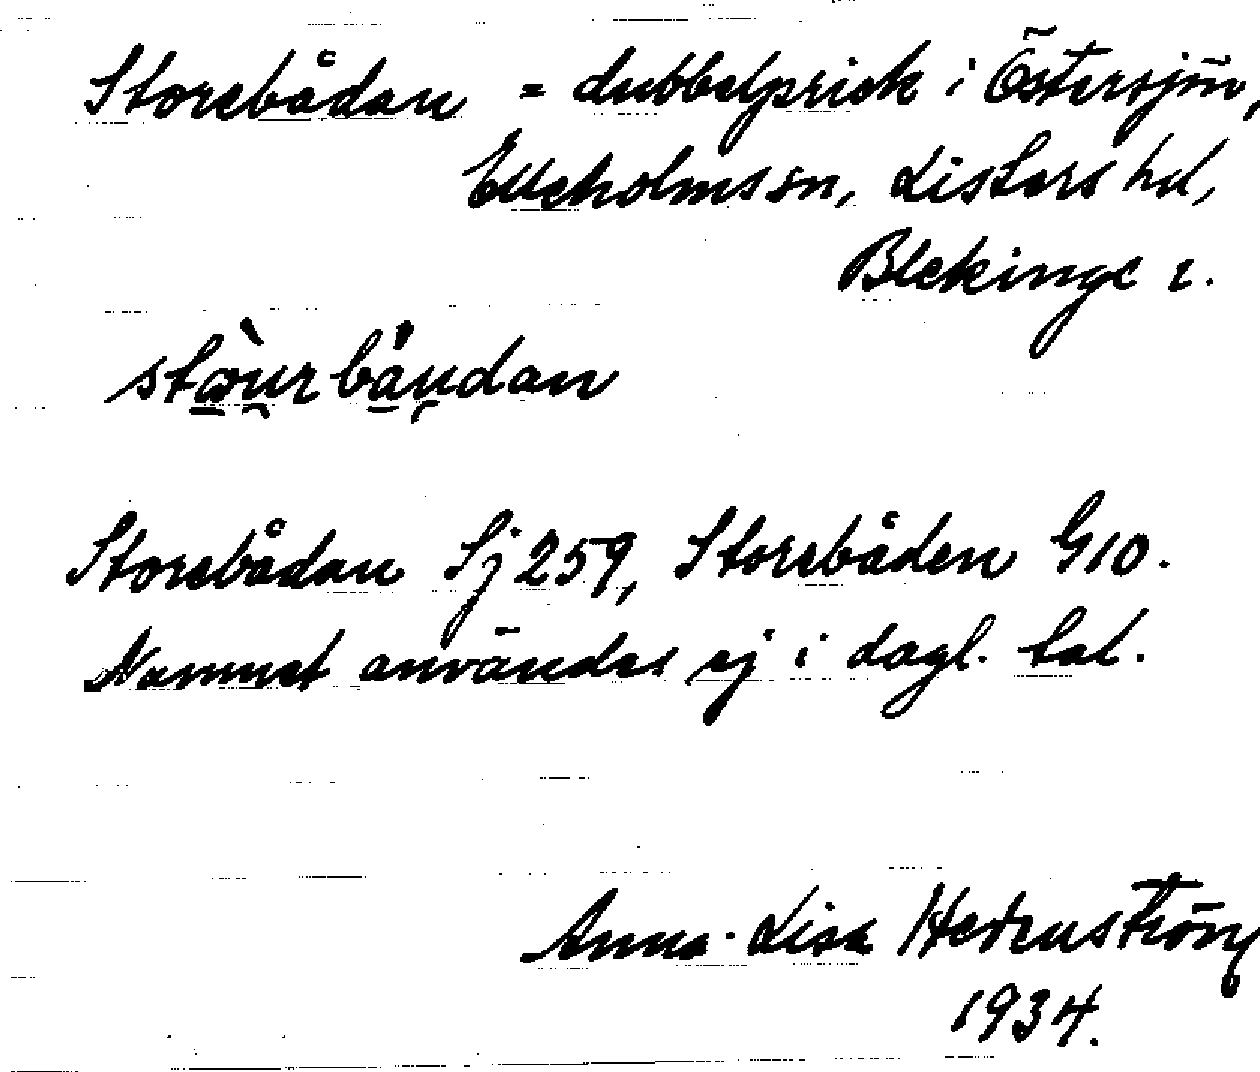 Storebådan = dubbelprick i Östersjön,
Elleholms sn, Listers hd,
Blekinge l.
Storebådan Sj 259, Storebåden G10.
Namnet användes ej i dagl. tal.
Anna-Lisa Hedenström
1934.